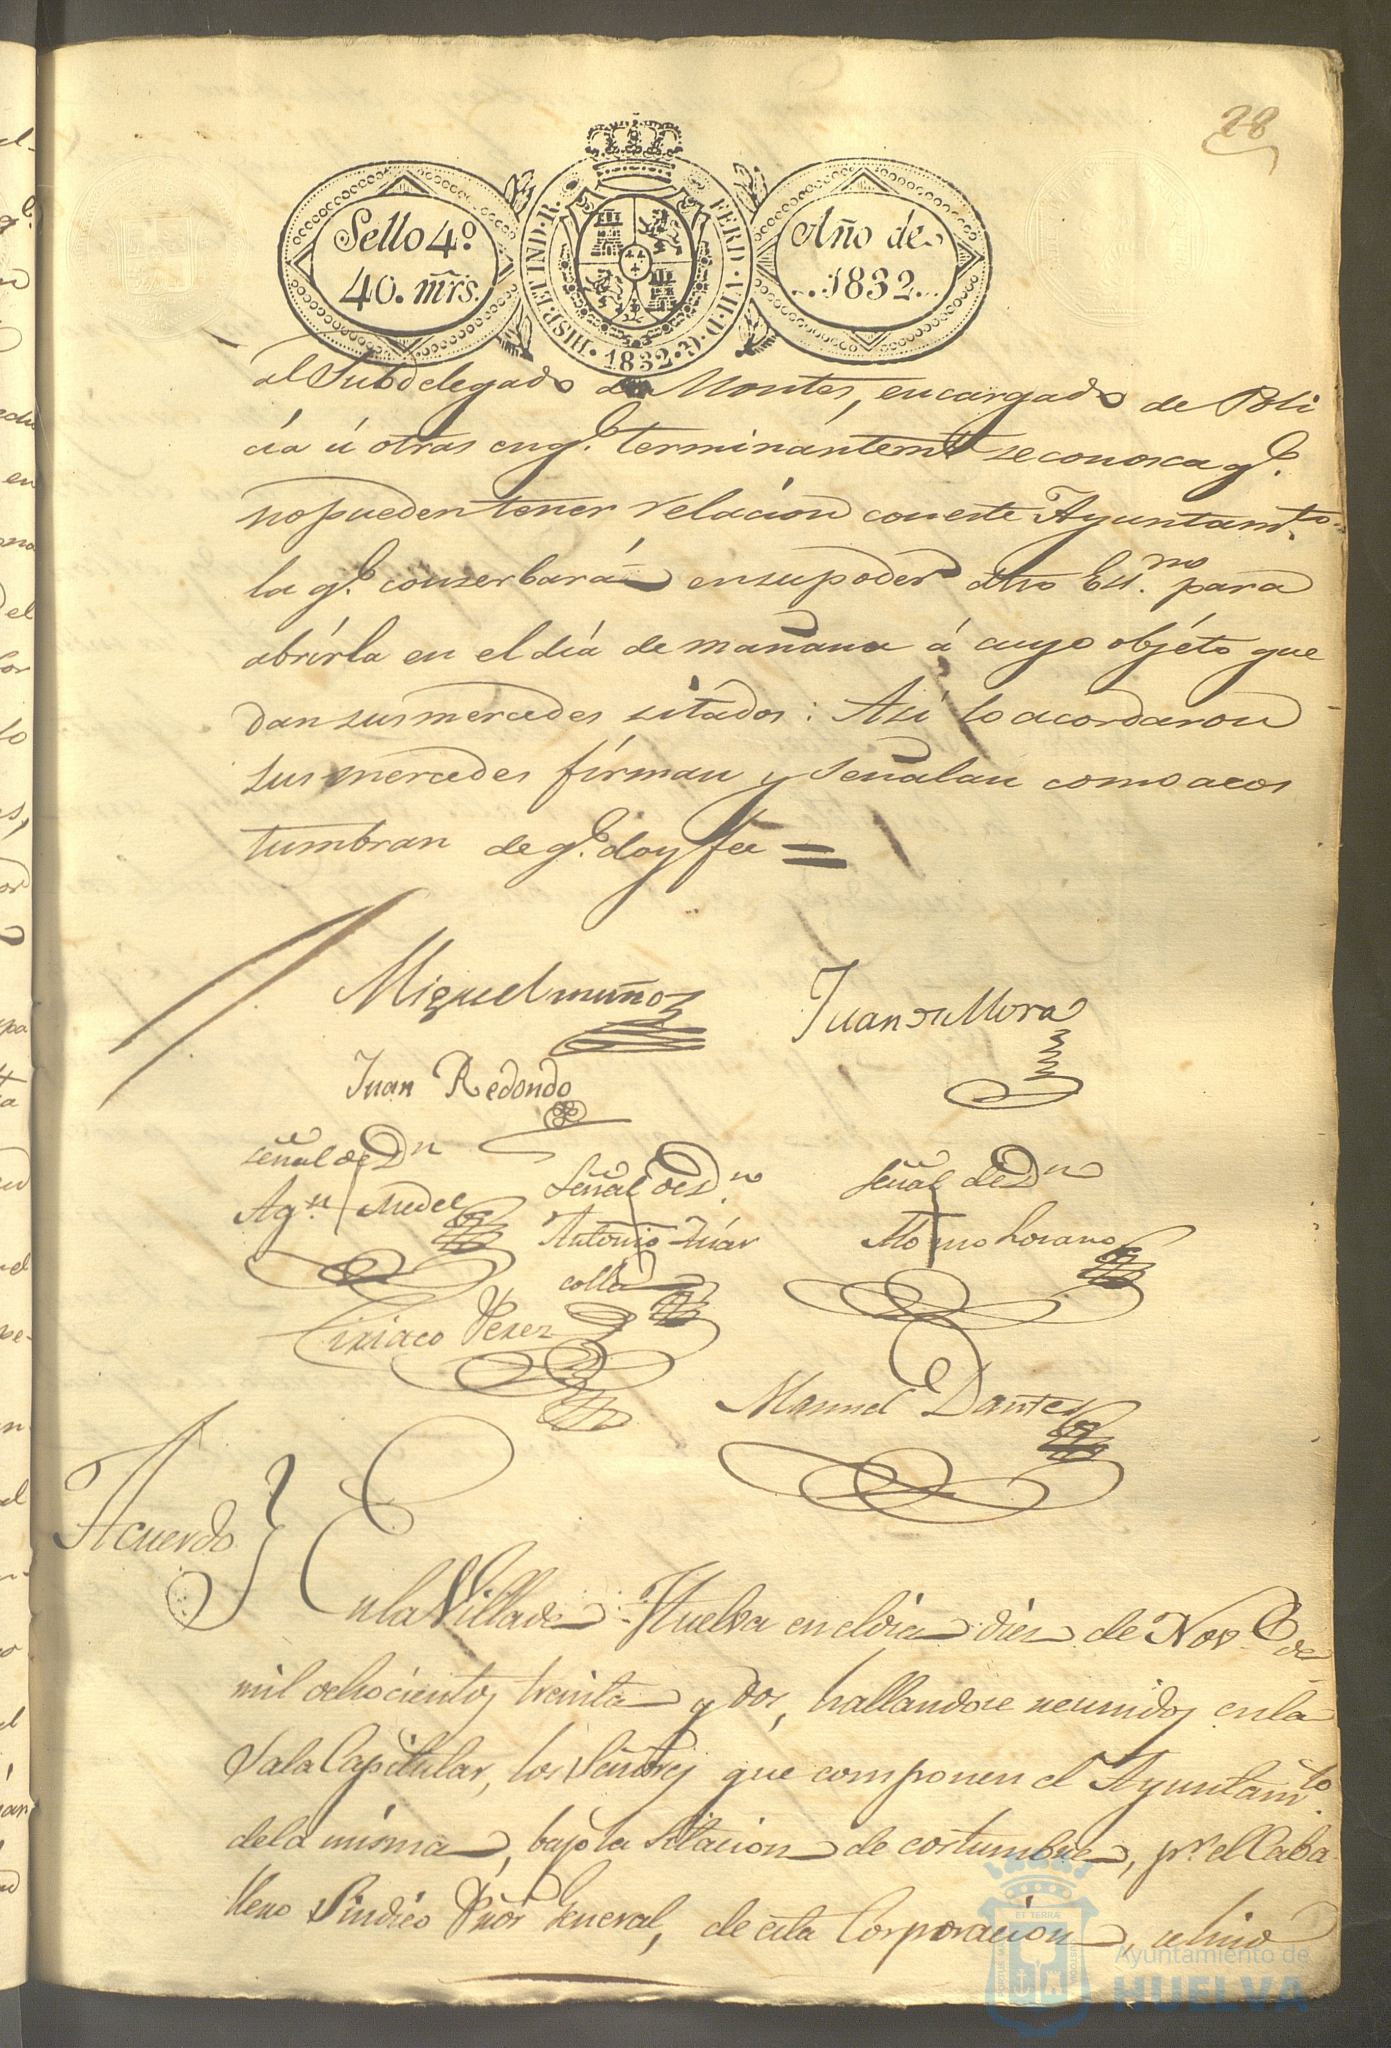 28
Sello 4º
40. mrs.
HISP. ET IND. R.
FERD. VII. D. G.
1832
Año de
1832
al Subdelegado de Montes, encargado de Poli
cía ú otras en qe. terminántemte. se conosca qe.
no pueden tener relacion con este Ayuntamto.
la qe. conserbará en su poder dho Essno. para
abrírla en el día de mañana á cuyo objéto que
dan sus mercedes sitados: Así lo acordaron
sus mercedes fírman y señalan como acos
tumbran de qe. doy fee =
Miguel muñoz
Juan de Mora
Juan Redondo
señal de Dn
Agn. Medel
Señal de Dn.
Antonio Suár
señal de Dn
Lorano
Ciriaco Perez
Manuel Dantes
Acuerdo
En la Villa de Huelva en el dia diez de Nove. de
mil ochocientos treinta y dos, hallandose reunidos en la
Sala Capitular, los Señores que componen el Ayuntamto.
de la misma, bajo la sitacion de costumbre, pr. el Caba
llero Sindico Pror General, de esta Corporacion, se hiso
Ayuntamiento de
HUELVA